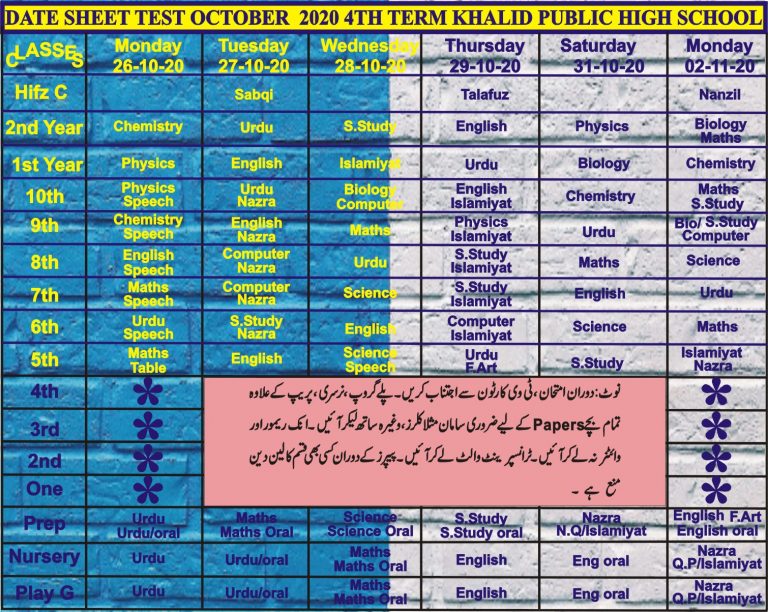 DATE SHEET TEST OCTOBER 2020 4TH TERM KHALID PUBLIC HIGH SCHOOL
CLASSES Monday 26-10-20 Tuesday 27-10-20 Wednesday 28-10-20 Thursday 29-10-20 Saturday 31-10-20 Monday 02-11-20
Hifz C Sabqi Talafuz Nanzil
2nd Year Chemistry Urdu S.Study English Physics Biology Maths
1st Year Physics English Islamiyat Urdu Biology Chemistry
10th Physics Speech Urdu Nazra Biology Computer English Islamiyat Chemistry Maths S.Study
9th Chemistry Speech English Nazra Maths Physics Islamiyat Urdu Bio/ S.Study Computer
8th English Speech Computer Nazra Urdu S.Study Islamiyat Maths Science
7th Maths Speech Computer Nazra Science S.Study Islamiyat English Urdu
6th Urdu Speech S.Study Nazra English Computer Islamiyat Science Maths
5th Maths Table English Science Speech Urdu F.Art S.Study Islamiyat Nazra
4th * نوٹ: دوران امتحان، ٹی وی کارٹون سے اجتناب کریں۔ پلے گروپ، نرسری، پریپ کے علاوہ *
3rd * تمام بچے Papers کے لیے ضروری سامان مثلا کلرز، وغیرہ ساتھ لیکر آئیں۔ انک ریمور اور *
2nd * وائٹنر نہ لے کر آئیں۔ ٹرانسپرینٹ والٹ لے کر آئیں۔ پیپرز کے دوران کسی بھی قسم کا لین دین *
One * منع ہے ۔ *
Prep Urdu Urdu/oral Maths Maths Oral Science Science Oral S.Study S.Study oral Nazra N.Q/Islamiyat English F.Art English oral
Nursery Urdu Urdu/oral Maths Maths Oral English Eng oral Nazra Q.P/Islamiyat
Play G Urdu Urdu/oral Maths Maths Oral English Eng oral Nazra Q.P/Islamiyat